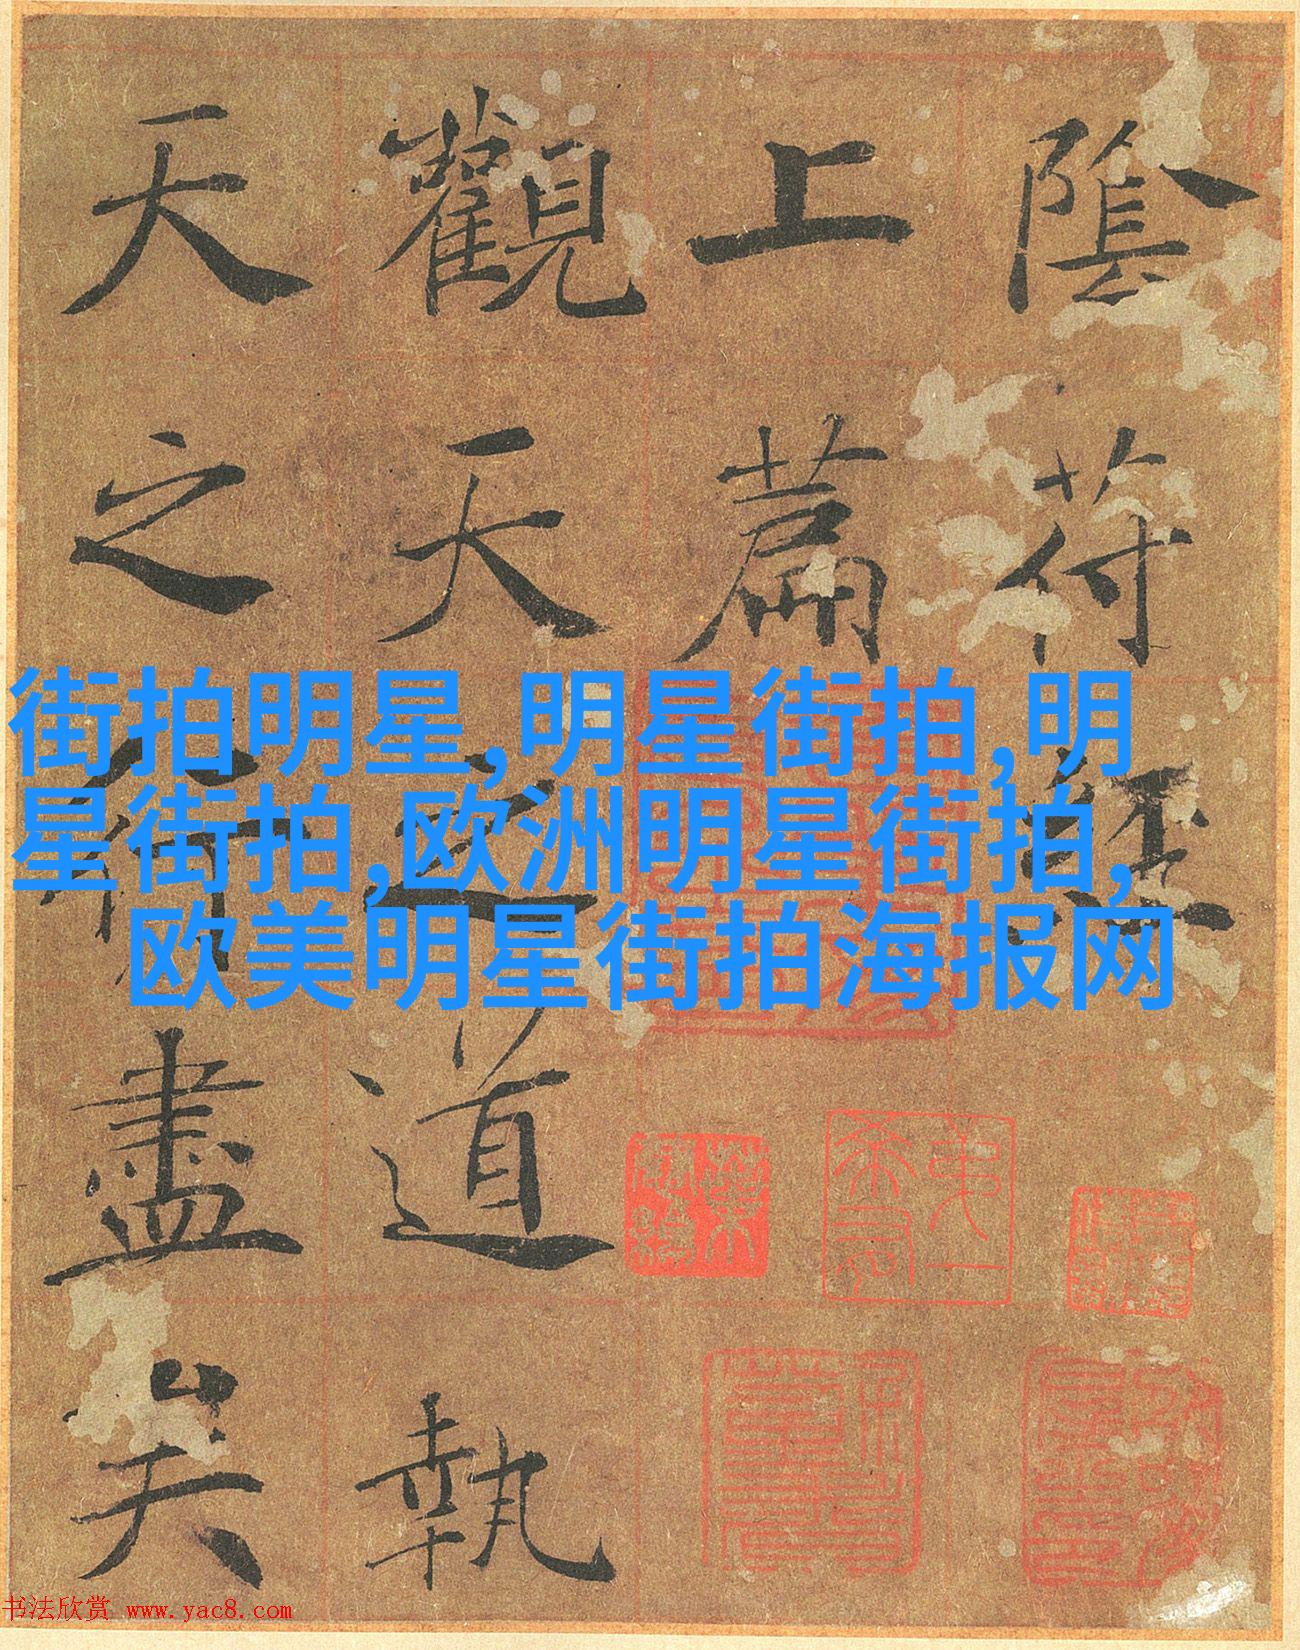 陰符經
上篇
觀天之道執
天之行盡矣
街拍明星,明星街拍,明
星街拍,欧洲明星街拍,
欧美明星街拍海报网
书法欣赏 www.yac8.com